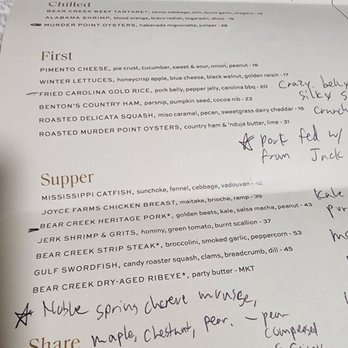 Chilled
BEAR CREEK BEEF TARTARE*,
ALABAMA SHRIMP, blood orange,
MURDER POINT OYSTERS, habanada mignonette, juniper - 18
First
PIMENTO CHEESE, pie crust, cucumber, sweet & sour, onion, peanut - 16
WINTER LETTUCES, honeycrisp apple, blue cheese, black walnut, golden raisin - 17
FRIED CAROLINA GOLD RICE, pork belly, pepper jelly, carolina bbq - 20
BENTON'S COUNTRY HAM, parsnip, pumpkin seed, cocoa nib - 23
ROASTED DELICATA SQUASH, miso caramel, pecan, sweetgrass dairy cheddar - 19
ROASTED MURDER POINT OYSTERS, country ham & 'nduja butter, lime - 31
Crazy belly
silky
crunch
pork fed w/
from Jack
Supper
MISSISSIPPI CATFISH, sunchoke, fennel, cabbage, vadouvan - 42
JOYCE FARMS CHICKEN BREAST, maitake, brioche, ramp - 39
BEAR CREEK HERITAGE PORK*, golden beets, kale, salsa macha, peanut - 43
JERK SHRIMP & GRITS, hominy, green tomato, burnt scallion - 37
BEAR CREEK STRIP STEAK*, broccolini, smoked garlic, peppercorn - 53
GULF SWORDFISH, candy roaster squash, clams, breadcrumb, dill - 45
BEAR CREEK DRY-AGED RIBEYE*, party butter - MKT
kale
Noble spring cheese mousse,
maple, chestnut, pear. - pear
compressed
Share